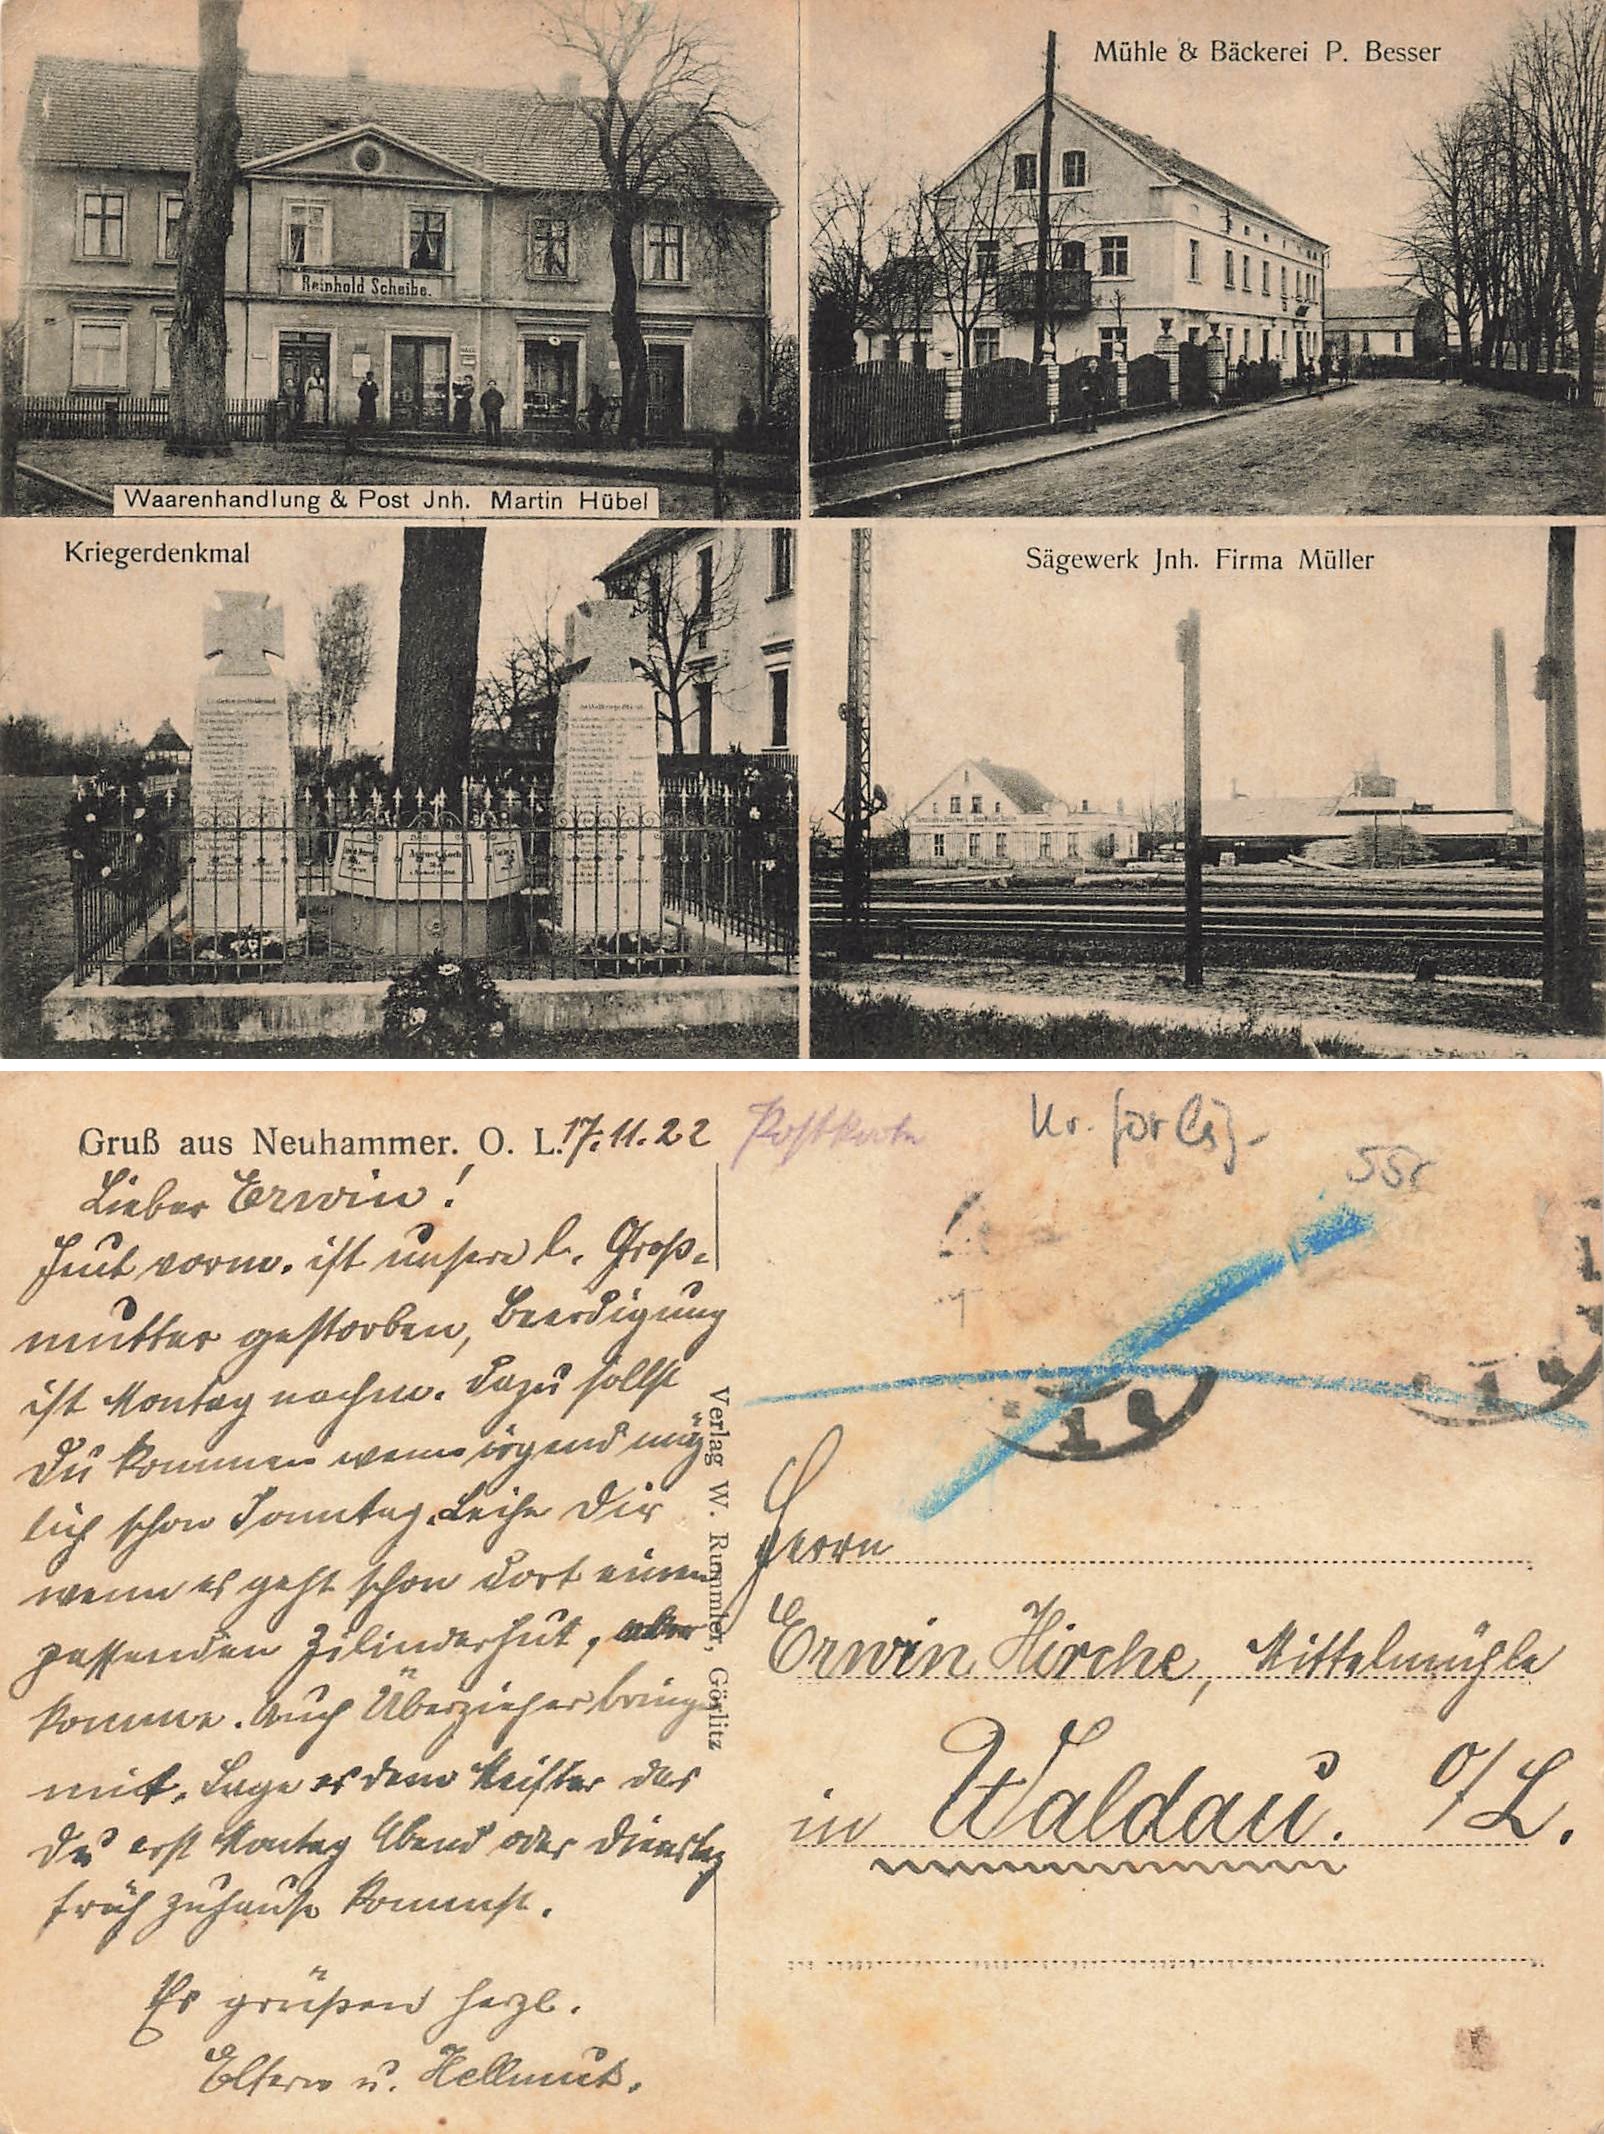 Reinhold Scheibe.
Waarenhandlung & Post Jnh. Martin Hübel
Mühle & Bäckerei P. Besser
Kriegerdenkmal
Sägewerk Jnh. Firma Müller
August Koch
Gruß aus Neuhammer. O. L. 17.11.22
Lieber Erwin!
Heut vorm. ist unsere l. Groß-
mutter gestorben, Beerdigung
ist Montag nachm. Dazu sollst
Du kommen wenn irgend mög
lich schon Sonntag. Leihe Dir
wenn es geht schon dort einen
passenden Zilinderhut, aber
komme. Auch Überzieher bringe
mit. Sage es dem Meister das
Du erst Montag Abend oder Dienstag
früh zuhause kommst.
Es grüßen herzl.
Eltern u. Hellmut.
Verlag W. Rummler, Görlitz
Postkarte
Kr. Görlitz
Herrn
Erwin Hirche, Mittelmühle
in Waldau. O/L.